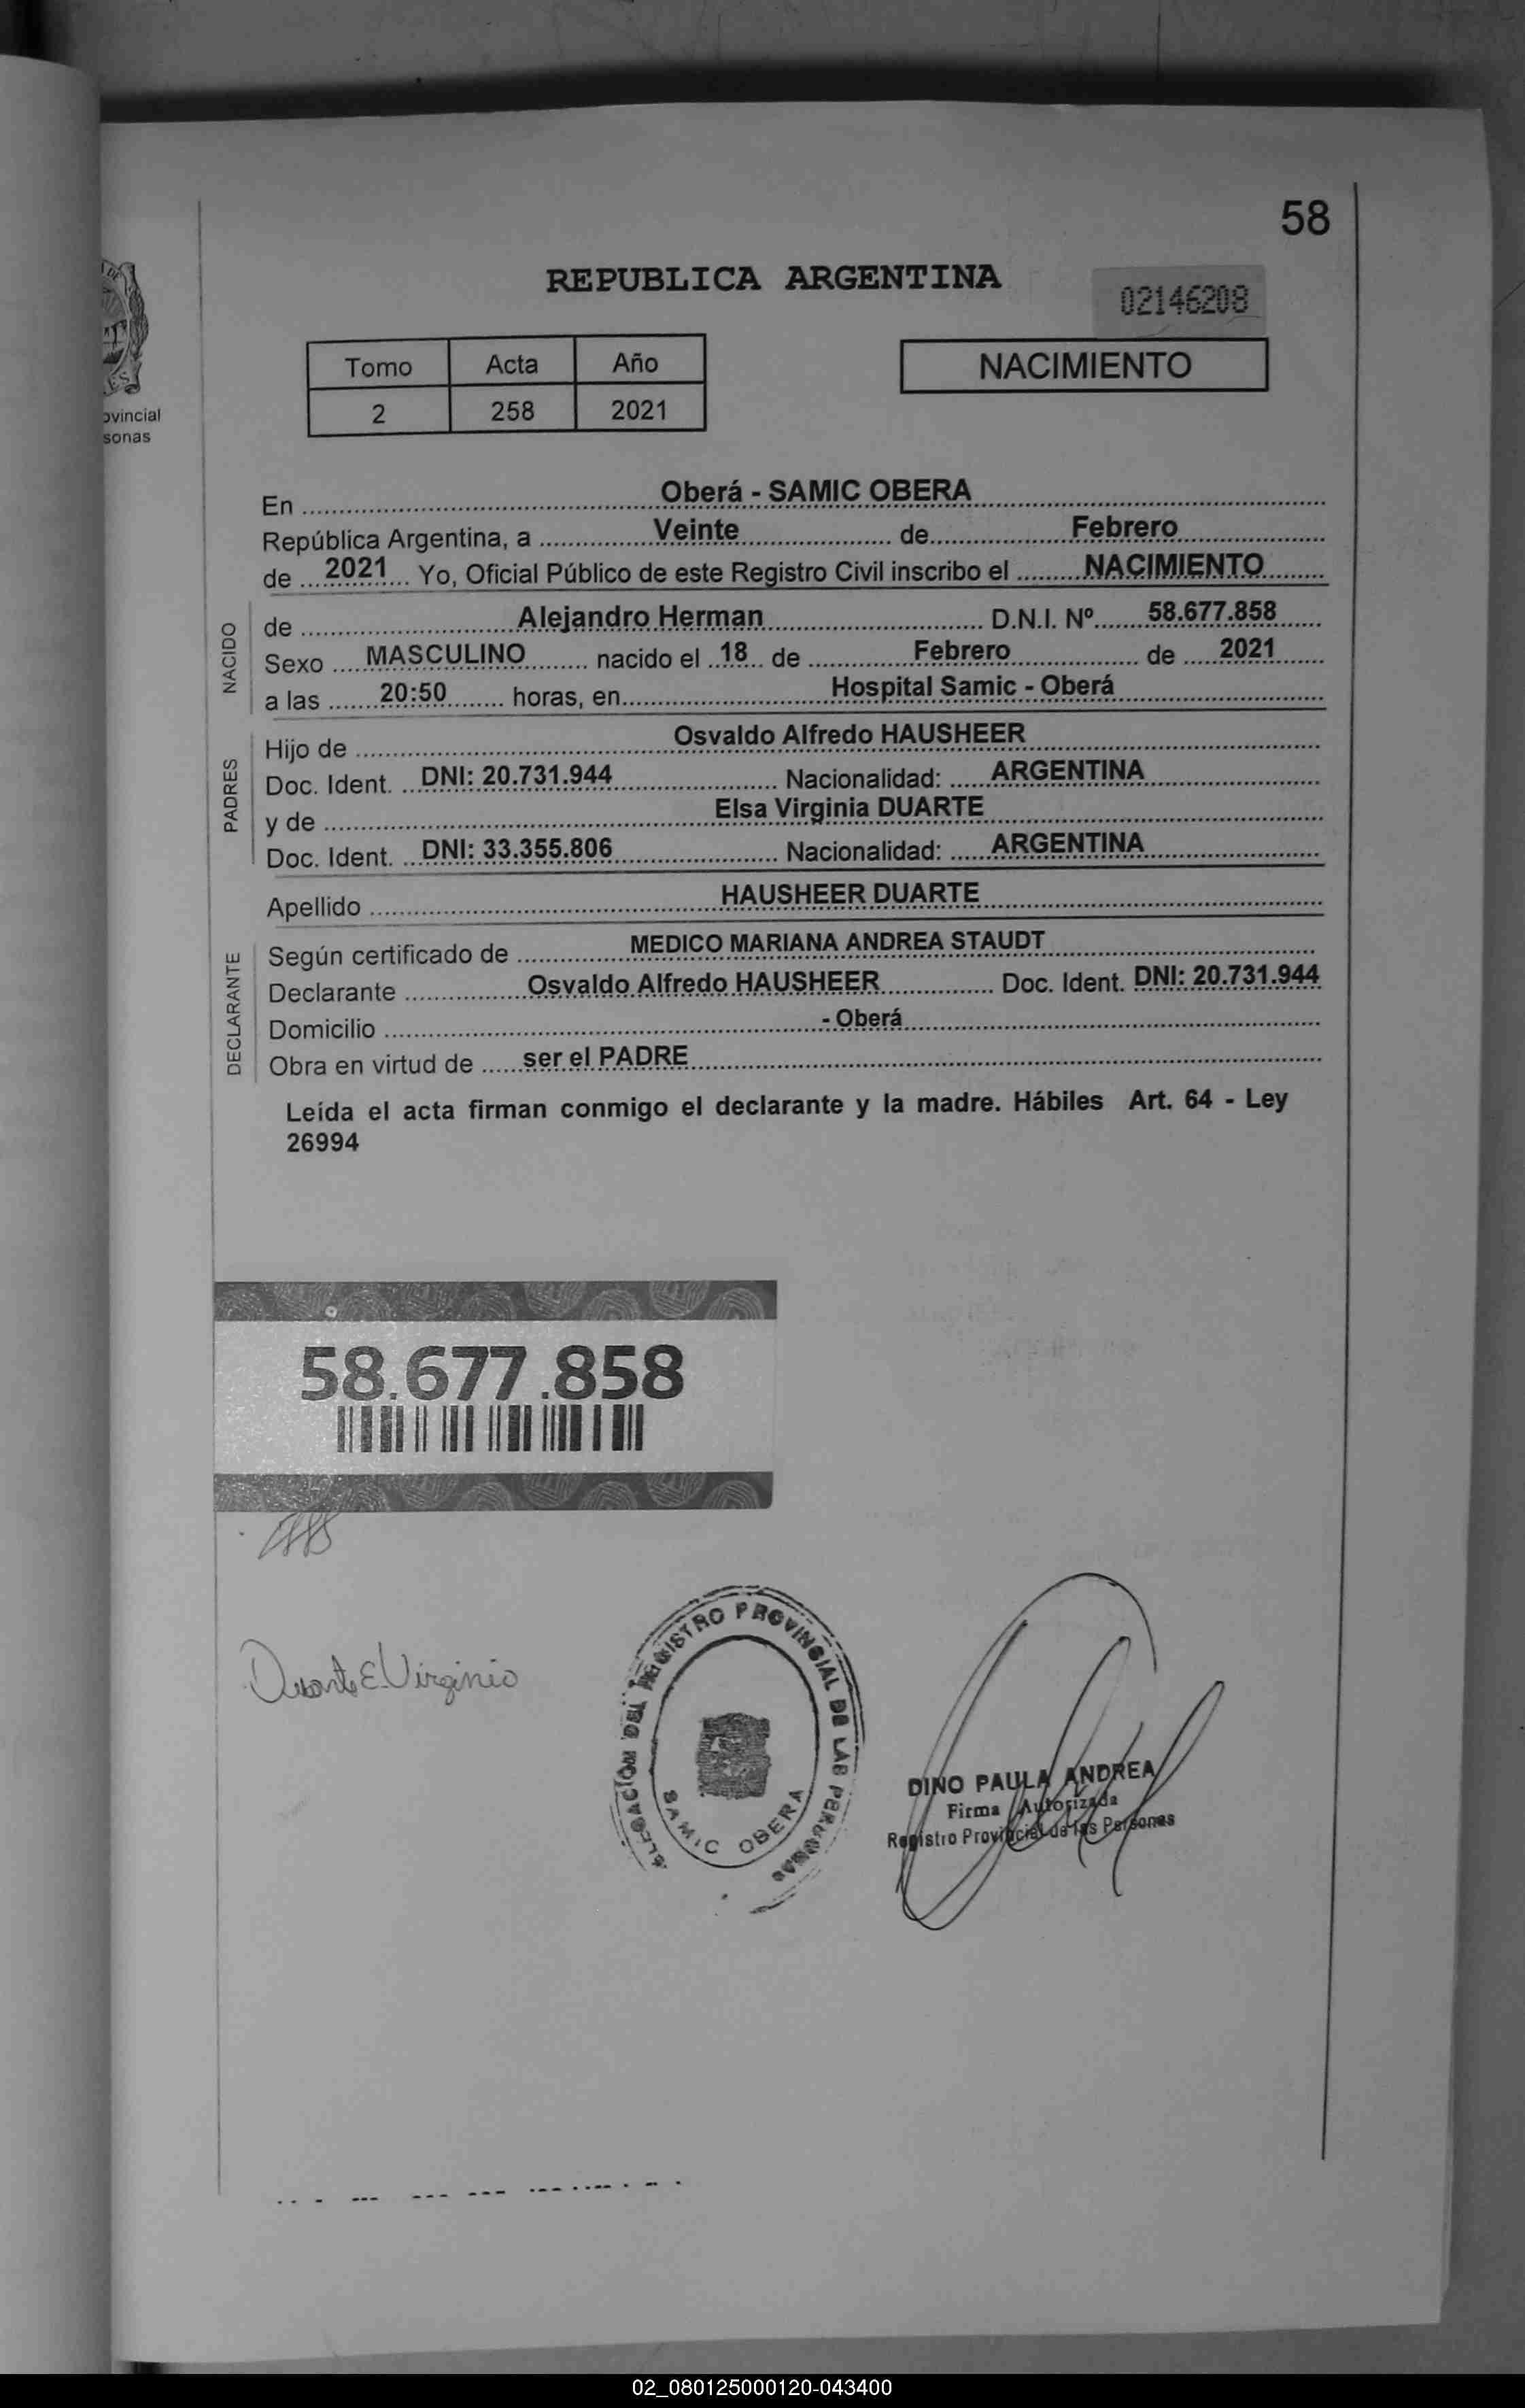 58
REPUBLICA ARGENTINA
02146208
Tomo Acta Año
2 258 2021
NACIMIENTO
ovincial
sonas
En Oberá - SAMIC OBERA
República Argentina, a Veinte de Febrero
de 2021 Yo, Oficial Público de este Registro Civil inscribo el NACIMIENTO
NACIDO
de Alejandro Herman D.N.I. Nº 58.677.858
Sexo MASCULINO nacido el 18 de Febrero de 2021
a las 20:50 horas, en Hospital Samic - Oberá
PADRES
Hijo de Osvaldo Alfredo HAUSHEER
Doc. Ident. DNI: 20.731.944 Nacionalidad: ARGENTINA
y de Elsa Virginia DUARTE
Doc. Ident. DNI: 33.355.806 Nacionalidad: ARGENTINA
Apellido HAUSHEER DUARTE
DECLARANTE
Según certificado de MEDICO MARIANA ANDREA STAUDT
Declarante Osvaldo Alfredo HAUSHEER Doc. Ident. DNI: 20.731.944
Domicilio - Oberá
Obra en virtud de ser el PADRE
Leída el acta firman conmigo el declarante y la madre. Hábiles Art. 64 - Ley
26994
58.677.858
Duarte E. Virginia
REGISTRO PROVINCIAL DE LAS PERSONAS
SAMIC OBERA
DINO PAULA ANDREA
Firma Autorizada
Registro Provincial de las Personas
02_080125000120-043400